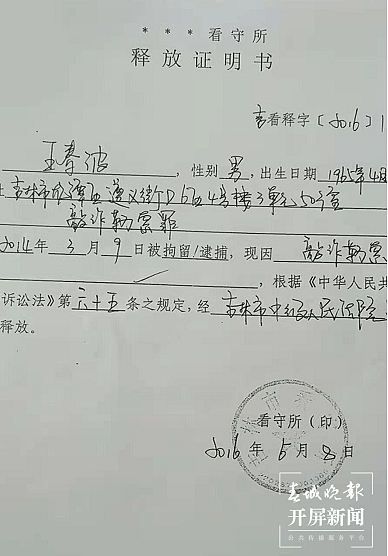 * * * 看守所
释放证明书
吉看释字〔2016〕1
王春波，性别男，出生日期1965年4月
吉林市龙潭区遵义街D6区4号楼3单元50号室
敲诈勒索罪
2014年3月9日被拘留/逮捕，现因敲诈勒索
，根据《中华人民共
诉讼法》第六十五条之规定，经吉林市中级人民法院
释放。
看守所（印）
2016年5月8日
春城晚报
开屏新闻
公共传媒服务平台